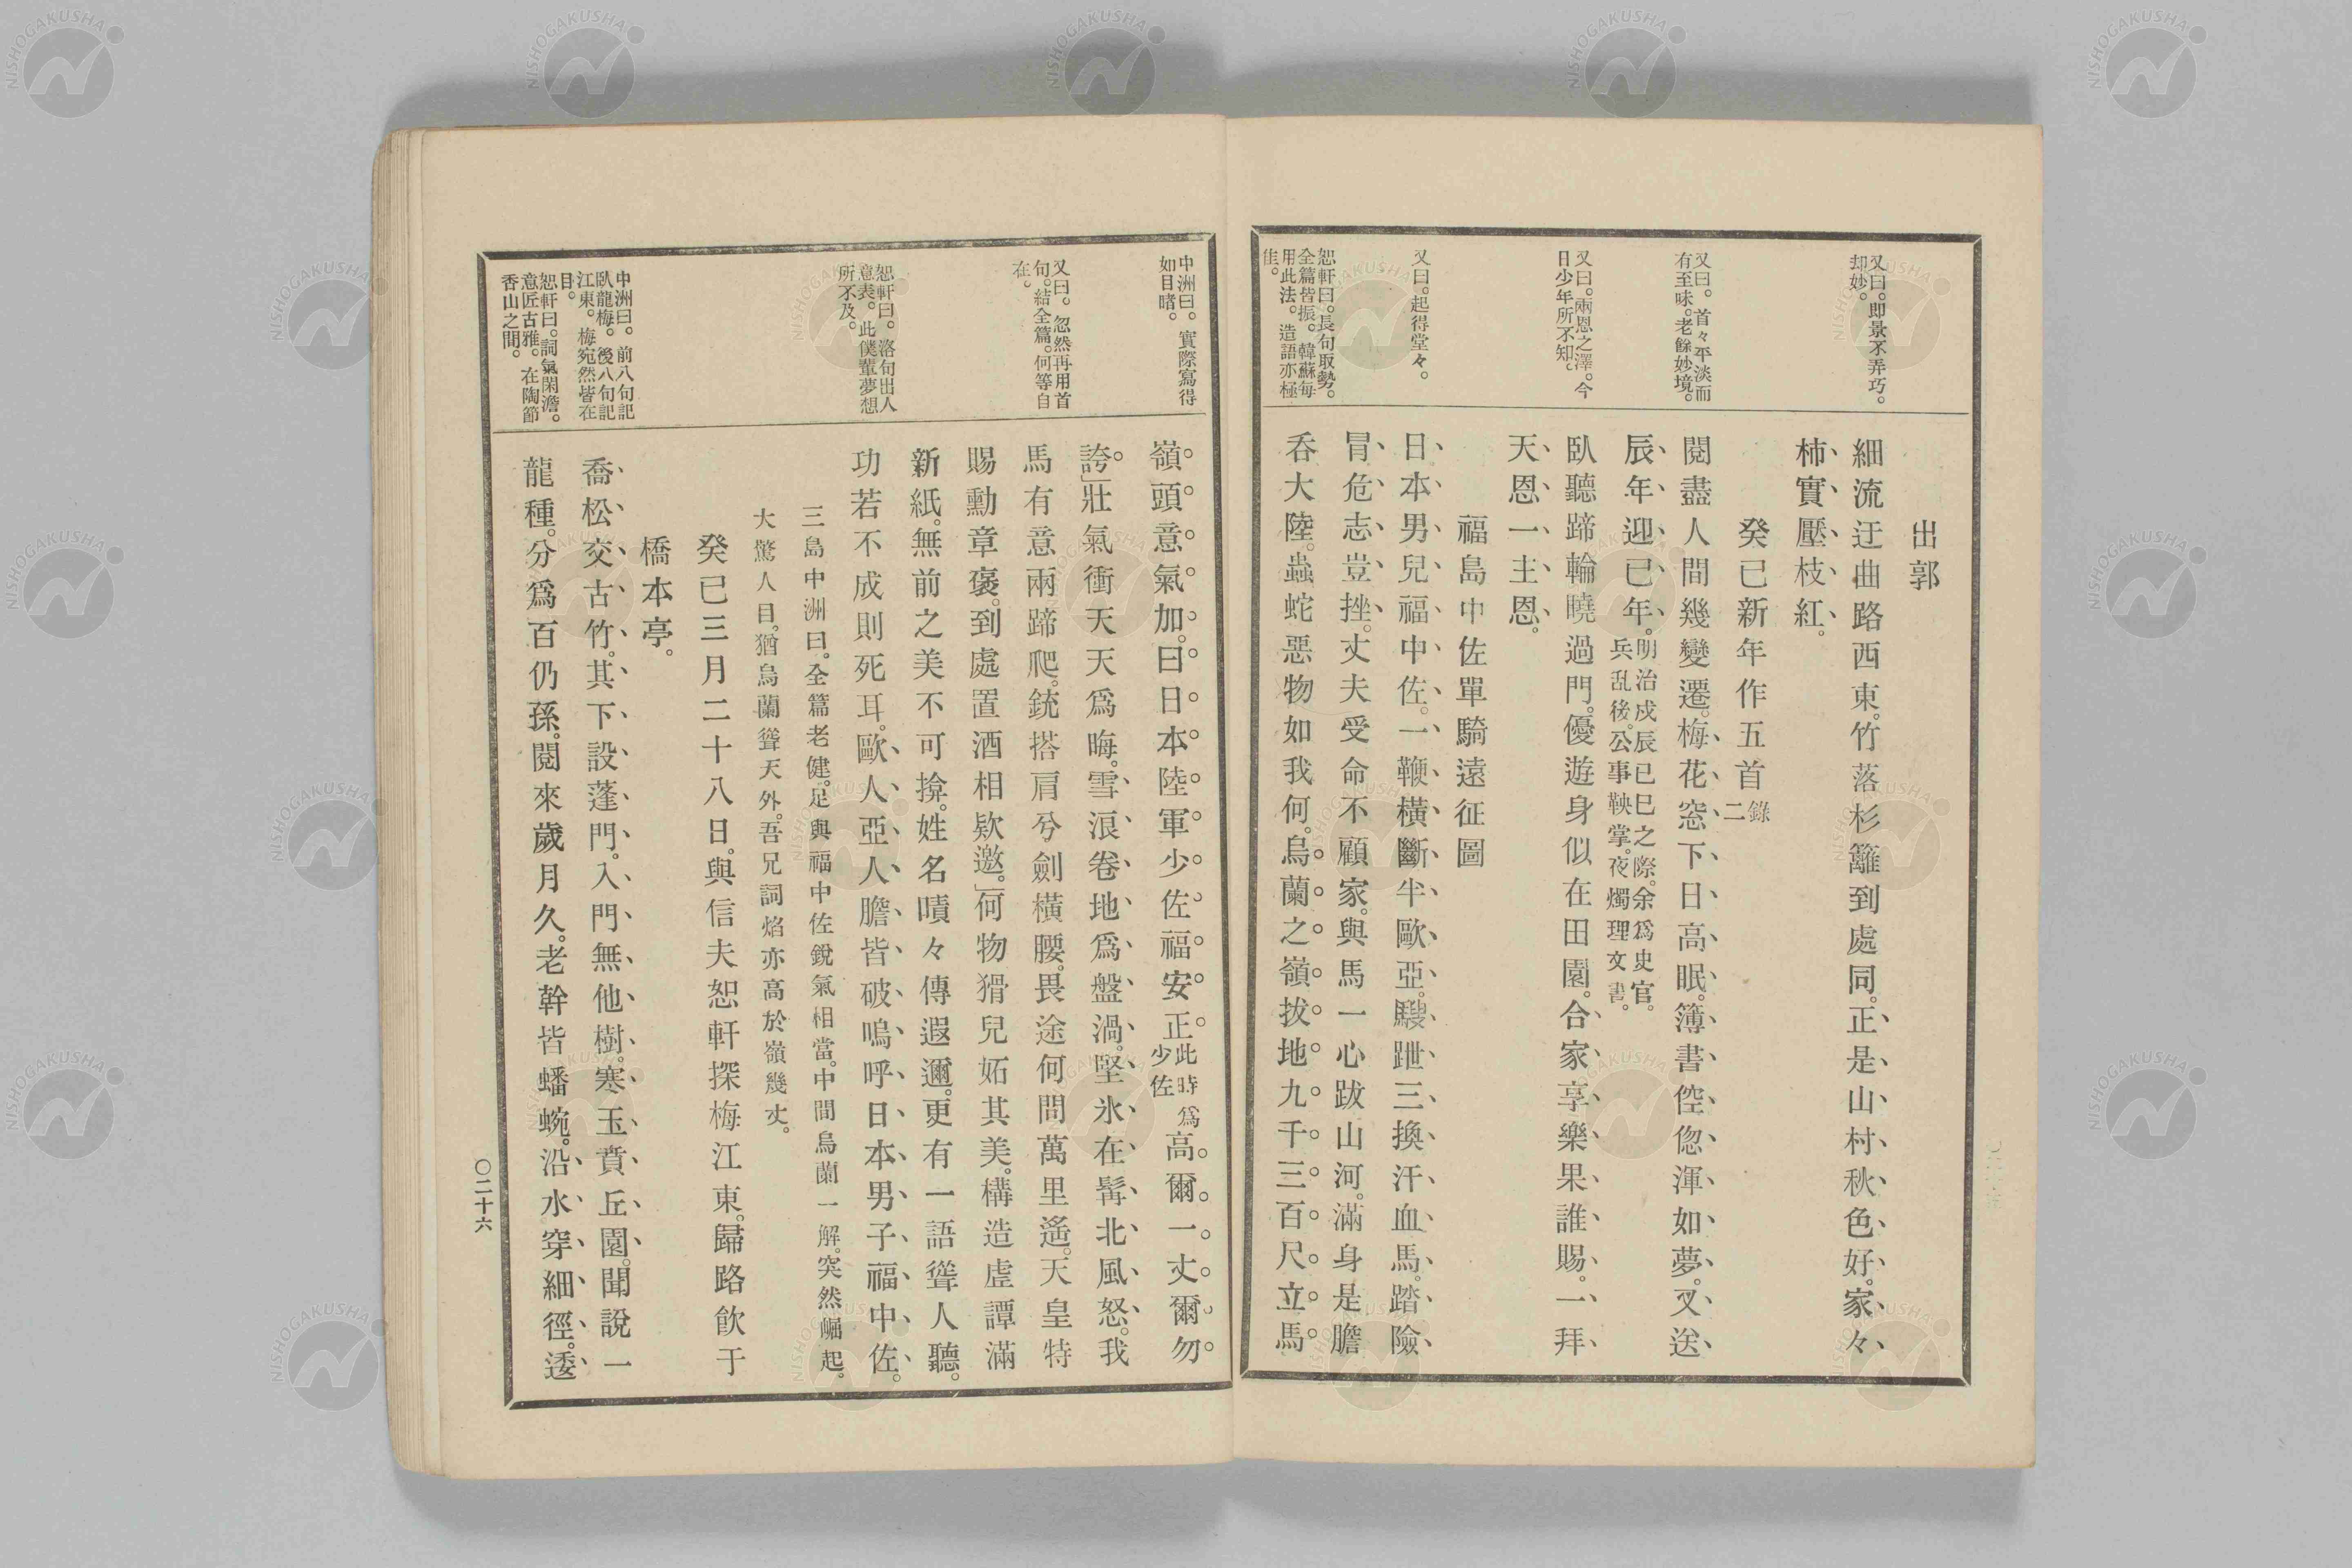 又曰。即景不弄巧。
却妙。
又曰。首々平淡而
有至味。老餘妙境。
又曰。兩恩之澤。今
日少年所不知。
又曰。起得堂々。
恕軒曰。長句取勢。
全篇皆振。韓蘇每
用此法。造語亦極
佳。
出郭
細流迂曲路西東。竹落杉籬到處同。正是山村秋色好。家々
柿實壓枝紅。
癸巳新年作五首錄二
閱盡人間幾變遷。梅花窓下日高眠。簿書倥偬渾如夢。又送
辰年迎巳年。明治戊辰己巳之際。余爲史官。
兵乱後。公事鞅掌。夜燭理文書。
臥聽蹄輪曉過門。優遊身似在田園。合家享樂果誰賜。一拜
天恩一主恩。
福島中佐單騎遠征圖
日本男兒福中佐。一鞭橫斷半歐亞。騣跇三換汗血馬。踏險
冒危志豈挫。丈夫受命不顧家。與馬一心跋山河。滿身是膽
呑大陸。蟲蛇惡物如我何。烏蘭之嶺拔地九千三百尺立馬
中洲曰。實際寫得
如目睹。
又曰。忽然再用首
句。結全篇。何等自
在。
恕軒曰。落句出人
意表。此僕輩夢想
所不及。
中洲曰。前八句記
臥龍梅。後八句記
江東。梅宛然皆在
目。
恕軒曰。詞氣閑澹。
意匠古雅。在陶節
香山之間。
嶺頭意氣加。曰日本陸軍少佐福安正此時爲
少佐高爾一丈爾勿
誇」壯氣衝天天爲晦。雪浪卷地爲盤渦。堅氷在髯北風怒。我
馬有意兩蹄爬。銃搭肩兮劍橫腰。畏途何問萬里遙。天皇特
賜勳章褒。到處置酒相欵邀。」何物猾兒妬其美。構造虛譚滿
新紙。無前之美不可揜。姓名嘖々傳遐邇。更有一語聳人聽。
功若不成則死耳。歐人亞人膽皆破嗚呼日本男子福中佐。
三島中洲曰。全篇老健。足與福中佐銳氣相當。中間烏蘭一解。突然崛起。
大驚人目。猶烏蘭聳天外。吾兄詞焰亦高於嶺幾丈。
癸巳三月二十八日。與信夫恕軒探梅江東。歸路飮于
橋本亭。
喬松交古竹。其下設蓬門。入門無他樹。寒玉賁丘園。聞說一
龍種。分爲百仍孫。閱來歲月久。老幹皆蟠蜿。沿水穿細徑。逶
〇二十六
NISHOGAKUSHA